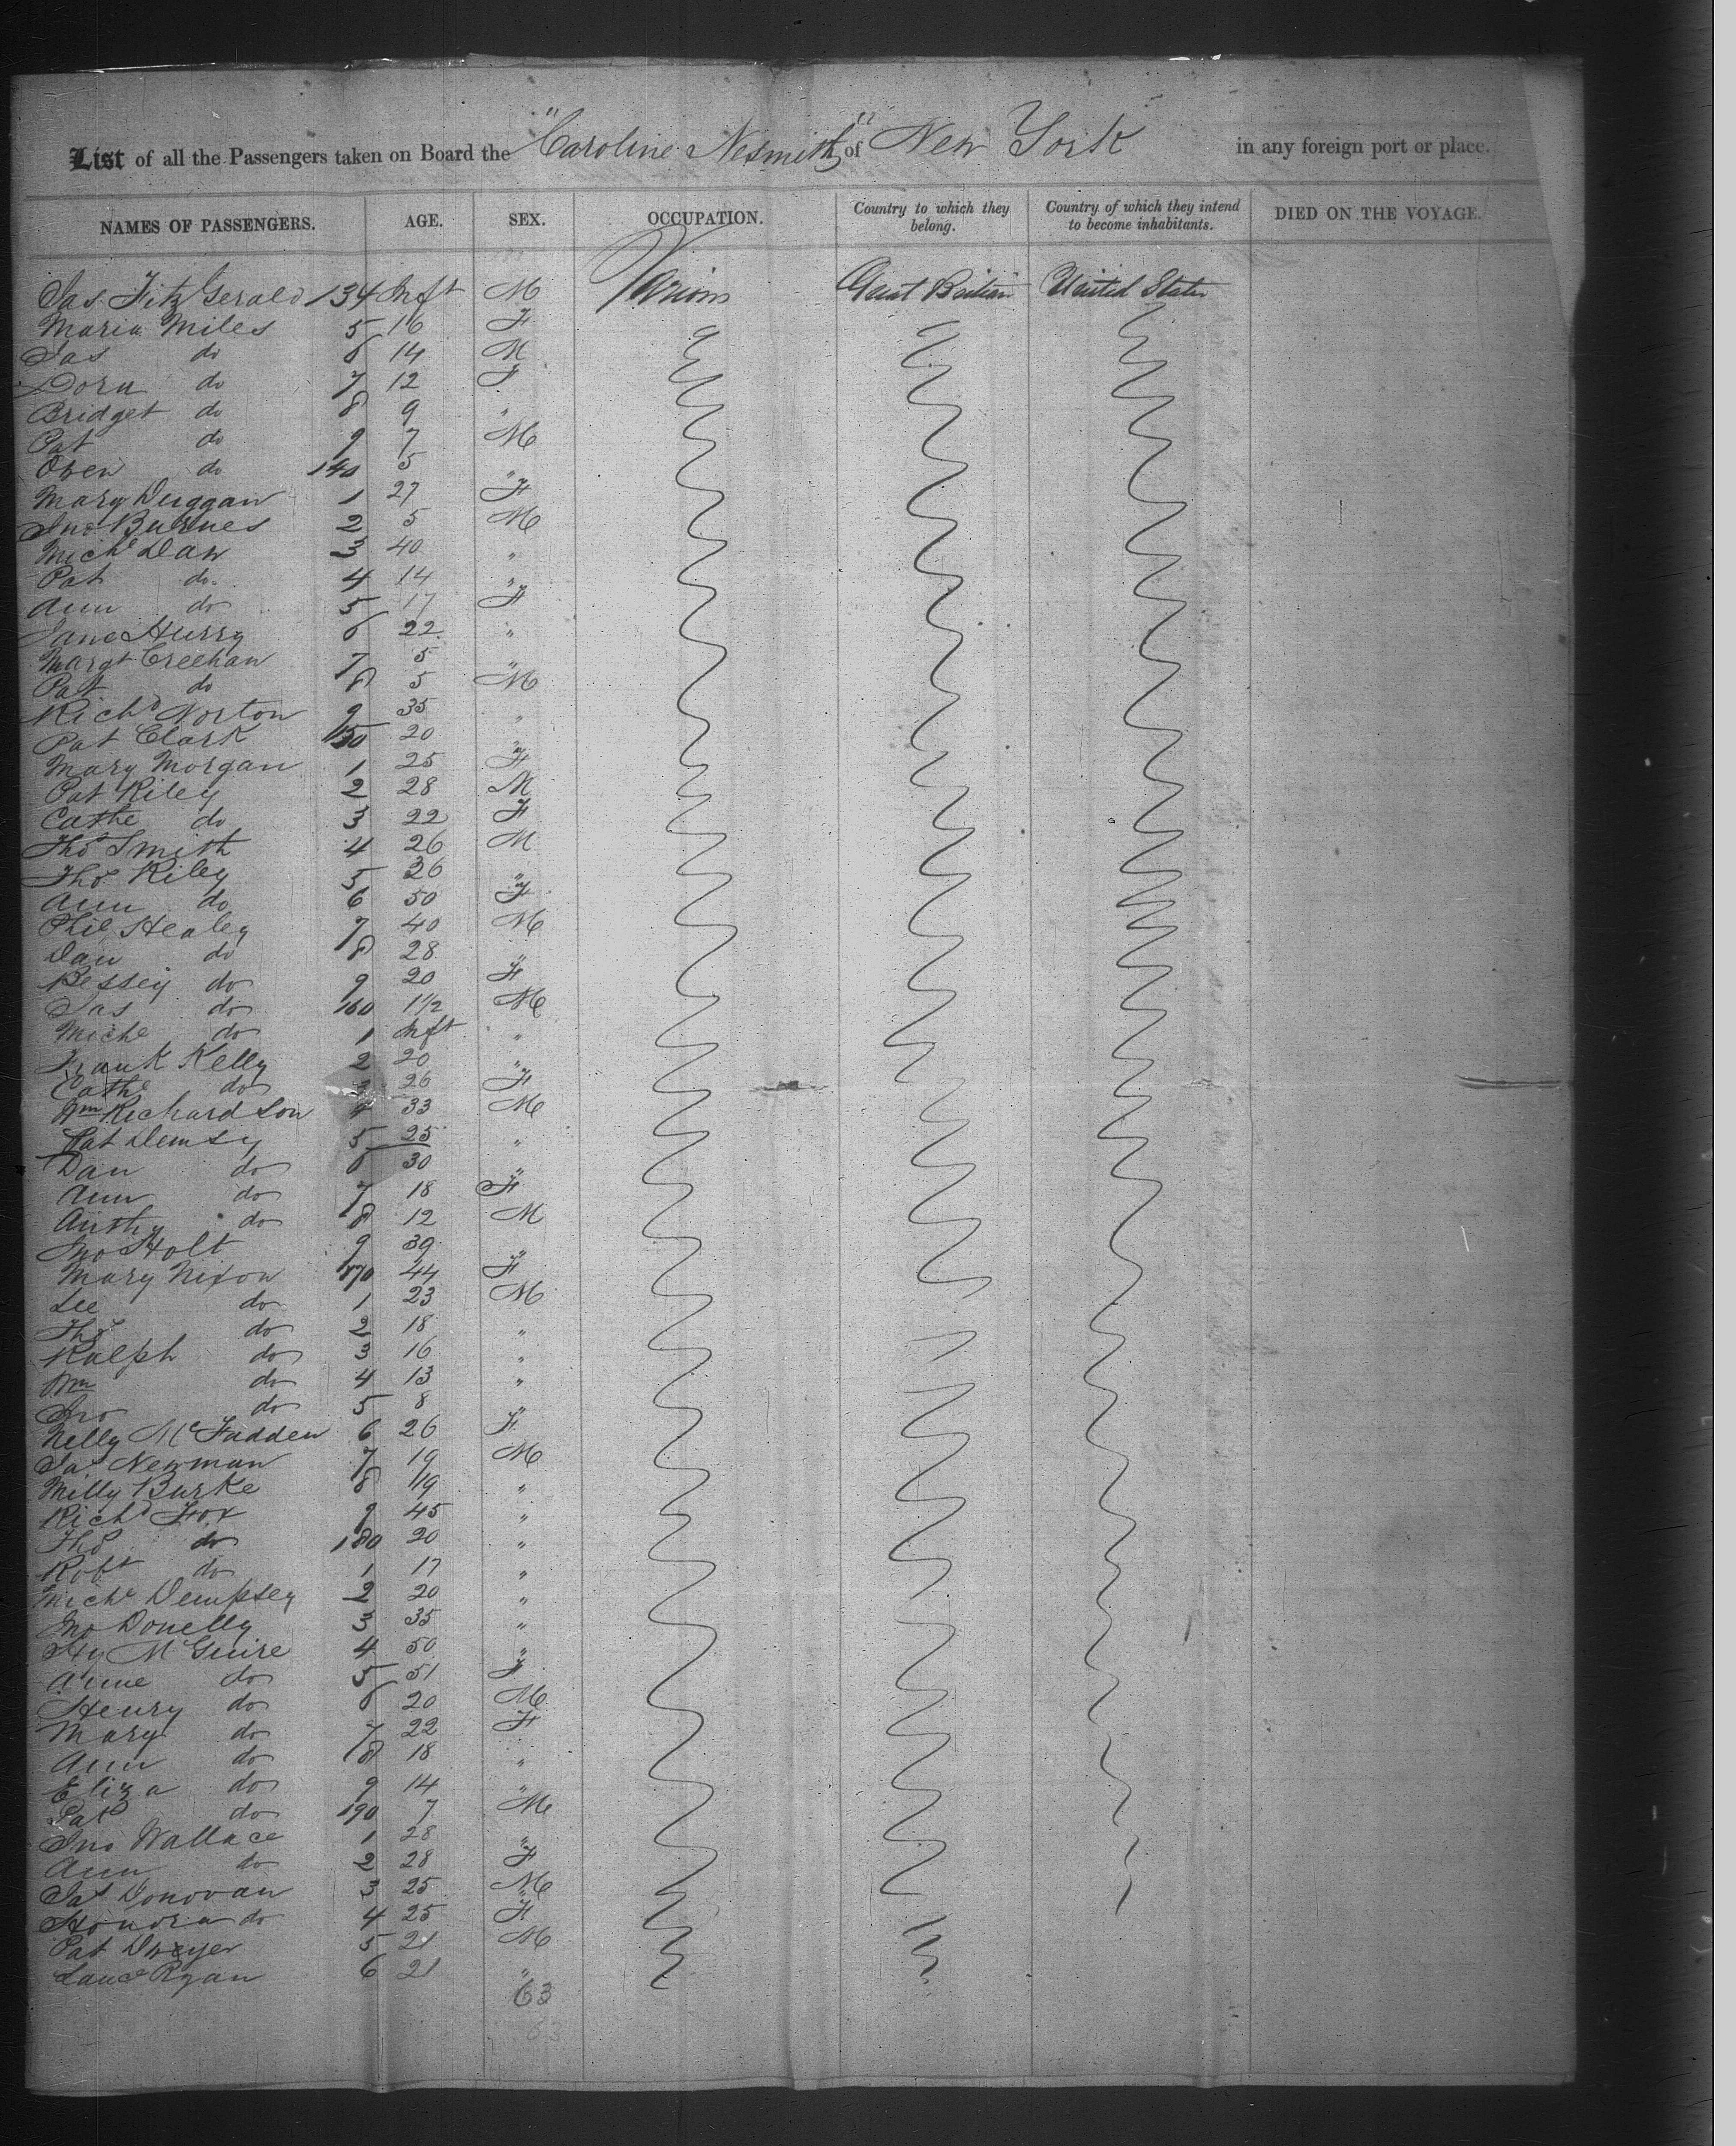 List of all the Passengers taken on Board the "Caroline Nesmith" of New York in any foreign port or place.
NAMES OF PASSENGERS. AGE. SEX. OCCUPATION. Country to which they belong. Country of which they intend to become inhabitants. DIED ON THE VOYAGE.
Jas. Fitz Gerald 134 Inft M Various Great Britian United States
Maria Miles 5 16 F
Jas do 6 14 M
Dora do 7 12 F
Bridget do 8 9 "
Pat do 9 7 M
Owen do 140 5 "
Mary Duggan 1 27 F
Jno Burnes 2 5 M
Michl Daw 3 40 "
Pat do 4 14 "
Ann do 5 17 F
Jane Hurry 6 22 "
Margt Creehan 7 5 "
Pat do 8 5 M
Richd Norton 9 35 "
Pat Clark 150 20 "
Mary Morgan 1 25 F
Pat Riley 2 28 M
Cathe do 3 22 F
Thos Smith 4 26 M
Thos Riley 5 26 "
Ann do 6 50 F
Phil Healey 7 40 M
Dan do 8 28 "
Bessey do 9 20 F
Jas do 160 1½ M
Michl do 1 Inft "
Frank Kelly 2 20 "
Cathe do 3 26 F
Wm Richardson 4 33 M
Pat Demsy 5 25 "
Dan do 6 30
Ann do 7 18 F
Anthy do 8 12 M
Jno Holt 9 39 "
Mary Nixon 170 44 F
Lee do 1 23 M
Thos do 2 18 "
Ralph do 3 16 "
Wm do 4 13 "
Jno do 5 8 "
Nelly McFadden 6 26 F
Jas Newman 7 19 M
Milly Burke 8 19 "
Richd Fox 9 45 "
Thos do 180 20 "
Robt do 1 17 "
Michl Dempsey 2 20 "
Jno Donelly 3 35 "
Hy McGuire 4 50 "
Anne do 5 51 F
Henry do 6 20 M
Mary do 7 22 F
Ann do 8 18 "
Eliza do 9 14 "
Pat do 190 7 M
Jno Wallace 1 28 "
Ann do 2 28 F
Jas Donovan 3 25 M
Honora do 4 25 F
Pat Dwyer 5 21 M
Lauce Ryan 6 21 "
63
63